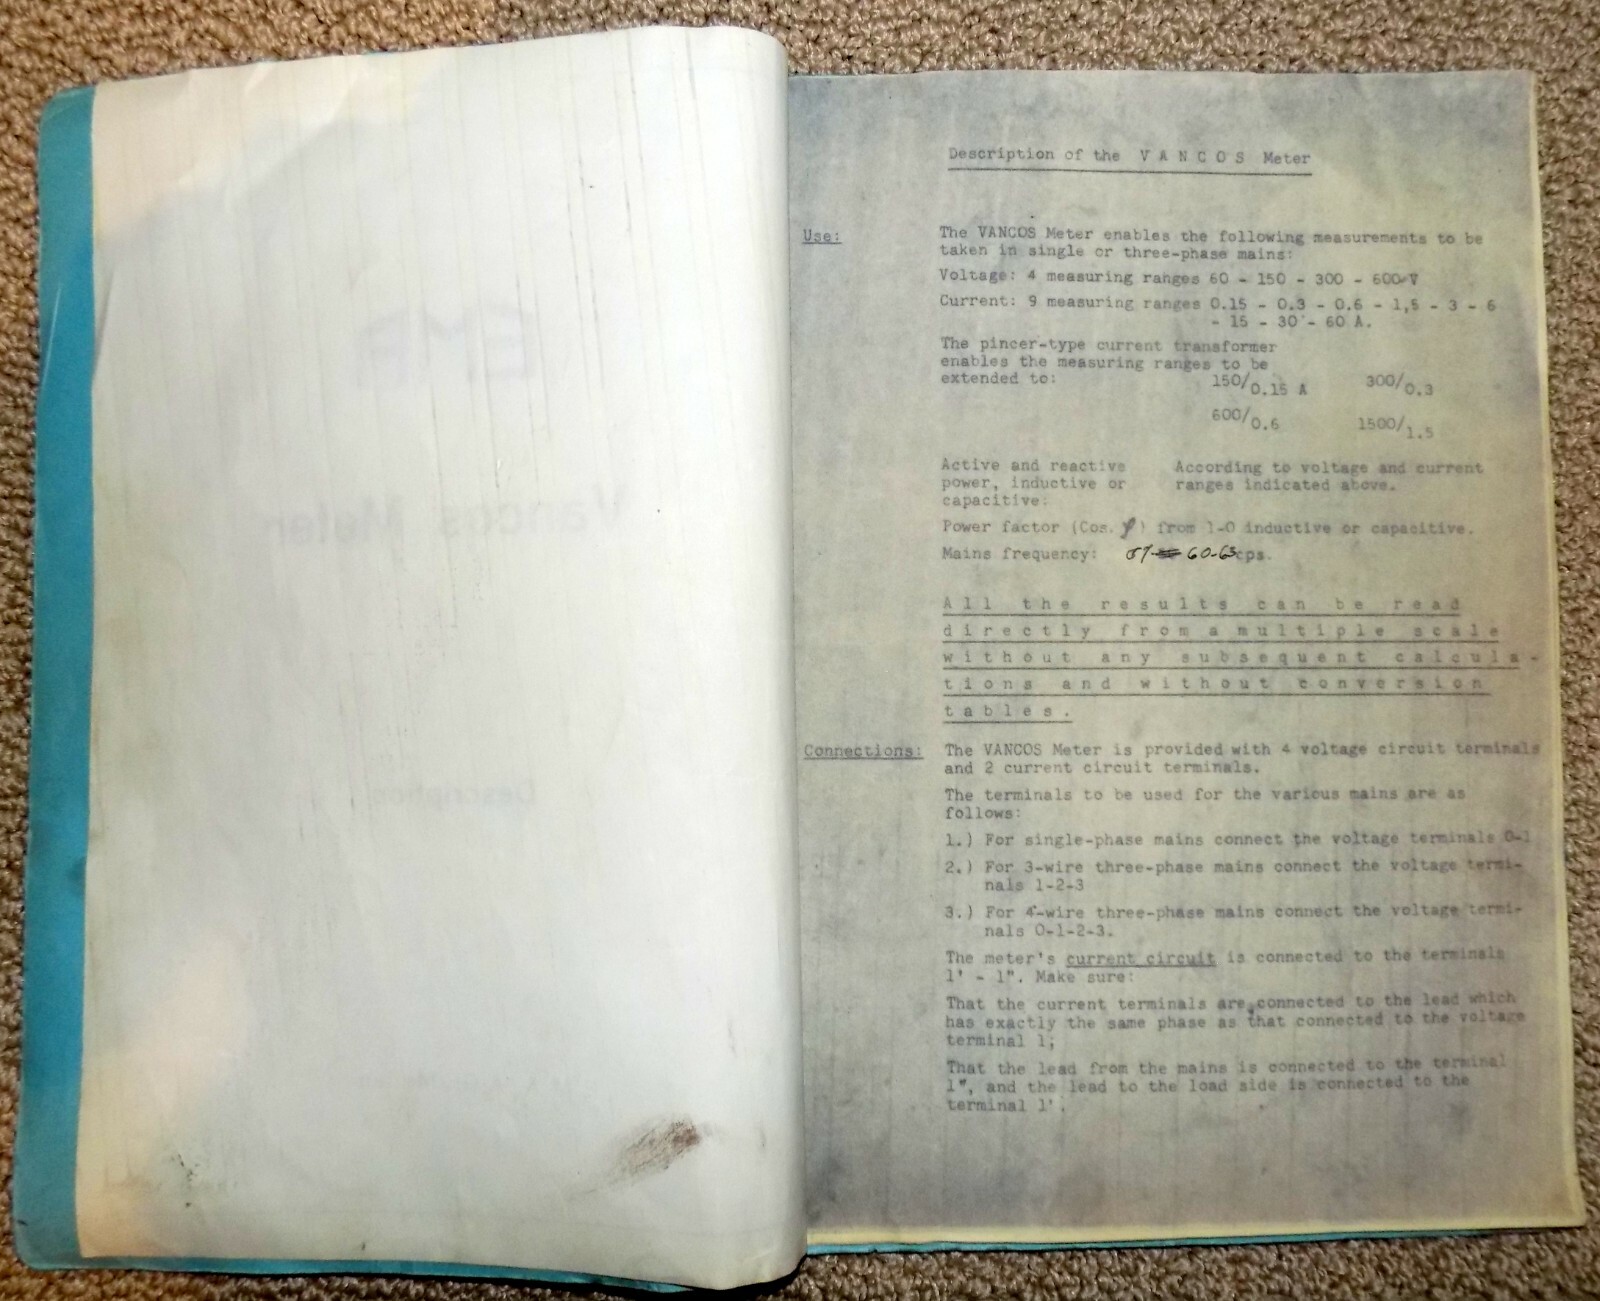 Vancos Meter
Description
Description of the V A N C O S Meter
Use:
The VANCOS Meter enables the following measurements to be
taken in single or three-phase mains:
Voltage: 4 measuring ranges 60 - 150 - 300 - 600 V
Current: 9 measuring ranges 0.15 - 0.3 - 0.6 - 1,5 - 3 - 6
- 15 - 30 - 60 A.
The pincer-type current transformer
enables the measuring ranges to be
extended to:
150/0.15 A 300/0.3
600/0.6 1500/1.5
Active and reactive According to voltage and current
power, inductive or ranges indicated above.
capacitive:
Power factor (Cos. φ) from 1-0 inductive or capacitive.
Mains frequency: 60-63 cps.
A l l t h e r e s u l t s c a n b e r e a d
d i r e c t l y f r o m a m u l t i p l e s c a l e
w i t h o u t a n y s u b s e q u e n t c a l c u l a -
t i o n s a n d w i t h o u t c o n v e r s i o n
t a b l e s .
Connections:
The VANCOS Meter is provided with 4 voltage circuit terminals
and 2 current circuit terminals.
The terminals to be used for the various mains are as
follows:
1.) For single-phase mains connect the voltage terminals 0-1
2.) For 3-wire three-phase mains connect the voltage termi-
nals 1-2-3
3.) For 4-wire three-phase mains connect the voltage termi-
nals 0-1-2-3.
The meter's current circuit is connected to the terminals
1' - 1". Make sure:
That the current terminals are connected to the lead which
has exactly the same phase as that connected to the voltage
terminal 1;
That the lead from the mains is connected to the terminal
1", and the lead to the load side is connected to the
terminal 1'.